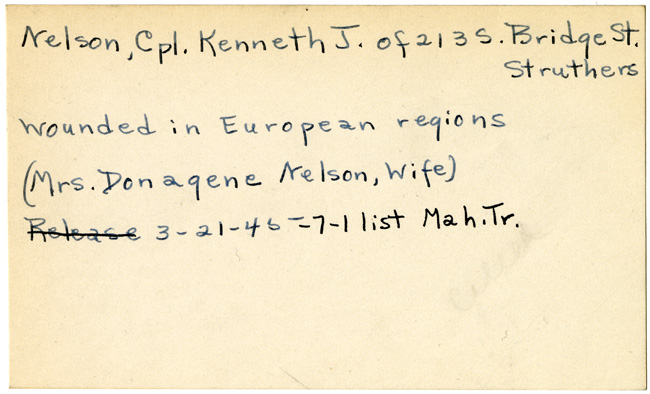 Nelson, Cpl. Kenneth J. of 213 S. Bridge St.
Struthers
wounded in European regions
(Mrs. Donagene Nelson, Wife)
Release 3-21-45 - 7-1 list Mah. Tr.